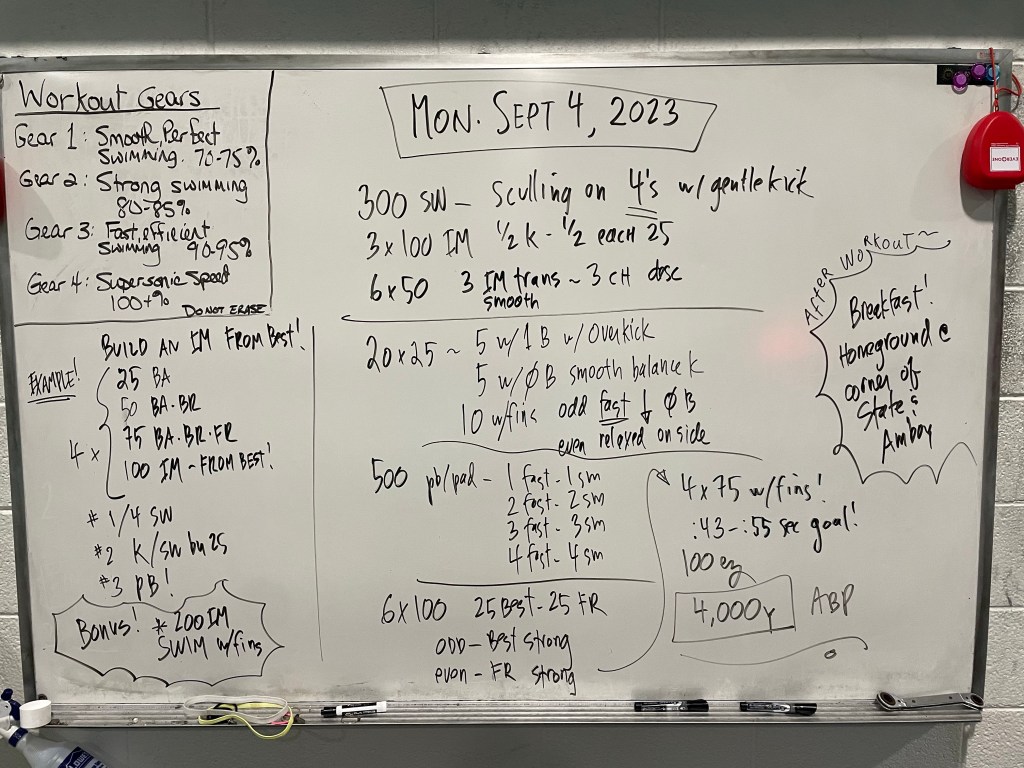 Workout Gears
Gear 1: Smooth, Perfect
Swimming. 70-75%
Gear 2: Strong swimming
80-85%
Gear 3: Fast, efficient
Swimming 90-95%
Gear 4: Supersonic Speed
100+%
DO NOT ERASE
BUILD AN IM FROM BEST!
EXAMPLE!
4 x
25 BA
50 BA-BR
75 BA-BR-FR
100 IM - FROM BEST!
#1/4 SW
#2 K/SW by 25
#3 PB!
BONUS! * 200 IM
SWIM w/fins
MON. SEPT 4, 2023
300 SW - sculling on 4's w/gentle kick
3 x 100 IM 1/2 K - 1/2 each 25
6 x 50 3 IM trans ~ 3 CH desc
smooth
20 x 25 ~ 5 w/1 B w/ Overkick
5 w/ØB smooth balance k
10 w/fins odd fast ↓ ØB
even relaxed on side
500 pb/pad - 1 fast - 1 sm
2 fast - 2 sm
3 fast - 3 sm
4 fast - 4 sm
6 x 100 25 Best - 25 FR
ODD - Best strong
even - FR strong
4 x 75 w/fins!
:43-:55 sec goal!
100 ez
4,000y ABP
AFTER WORKOUT~
Breakfast!
Homeground @
corner of
State &
Amboy
EVERONE